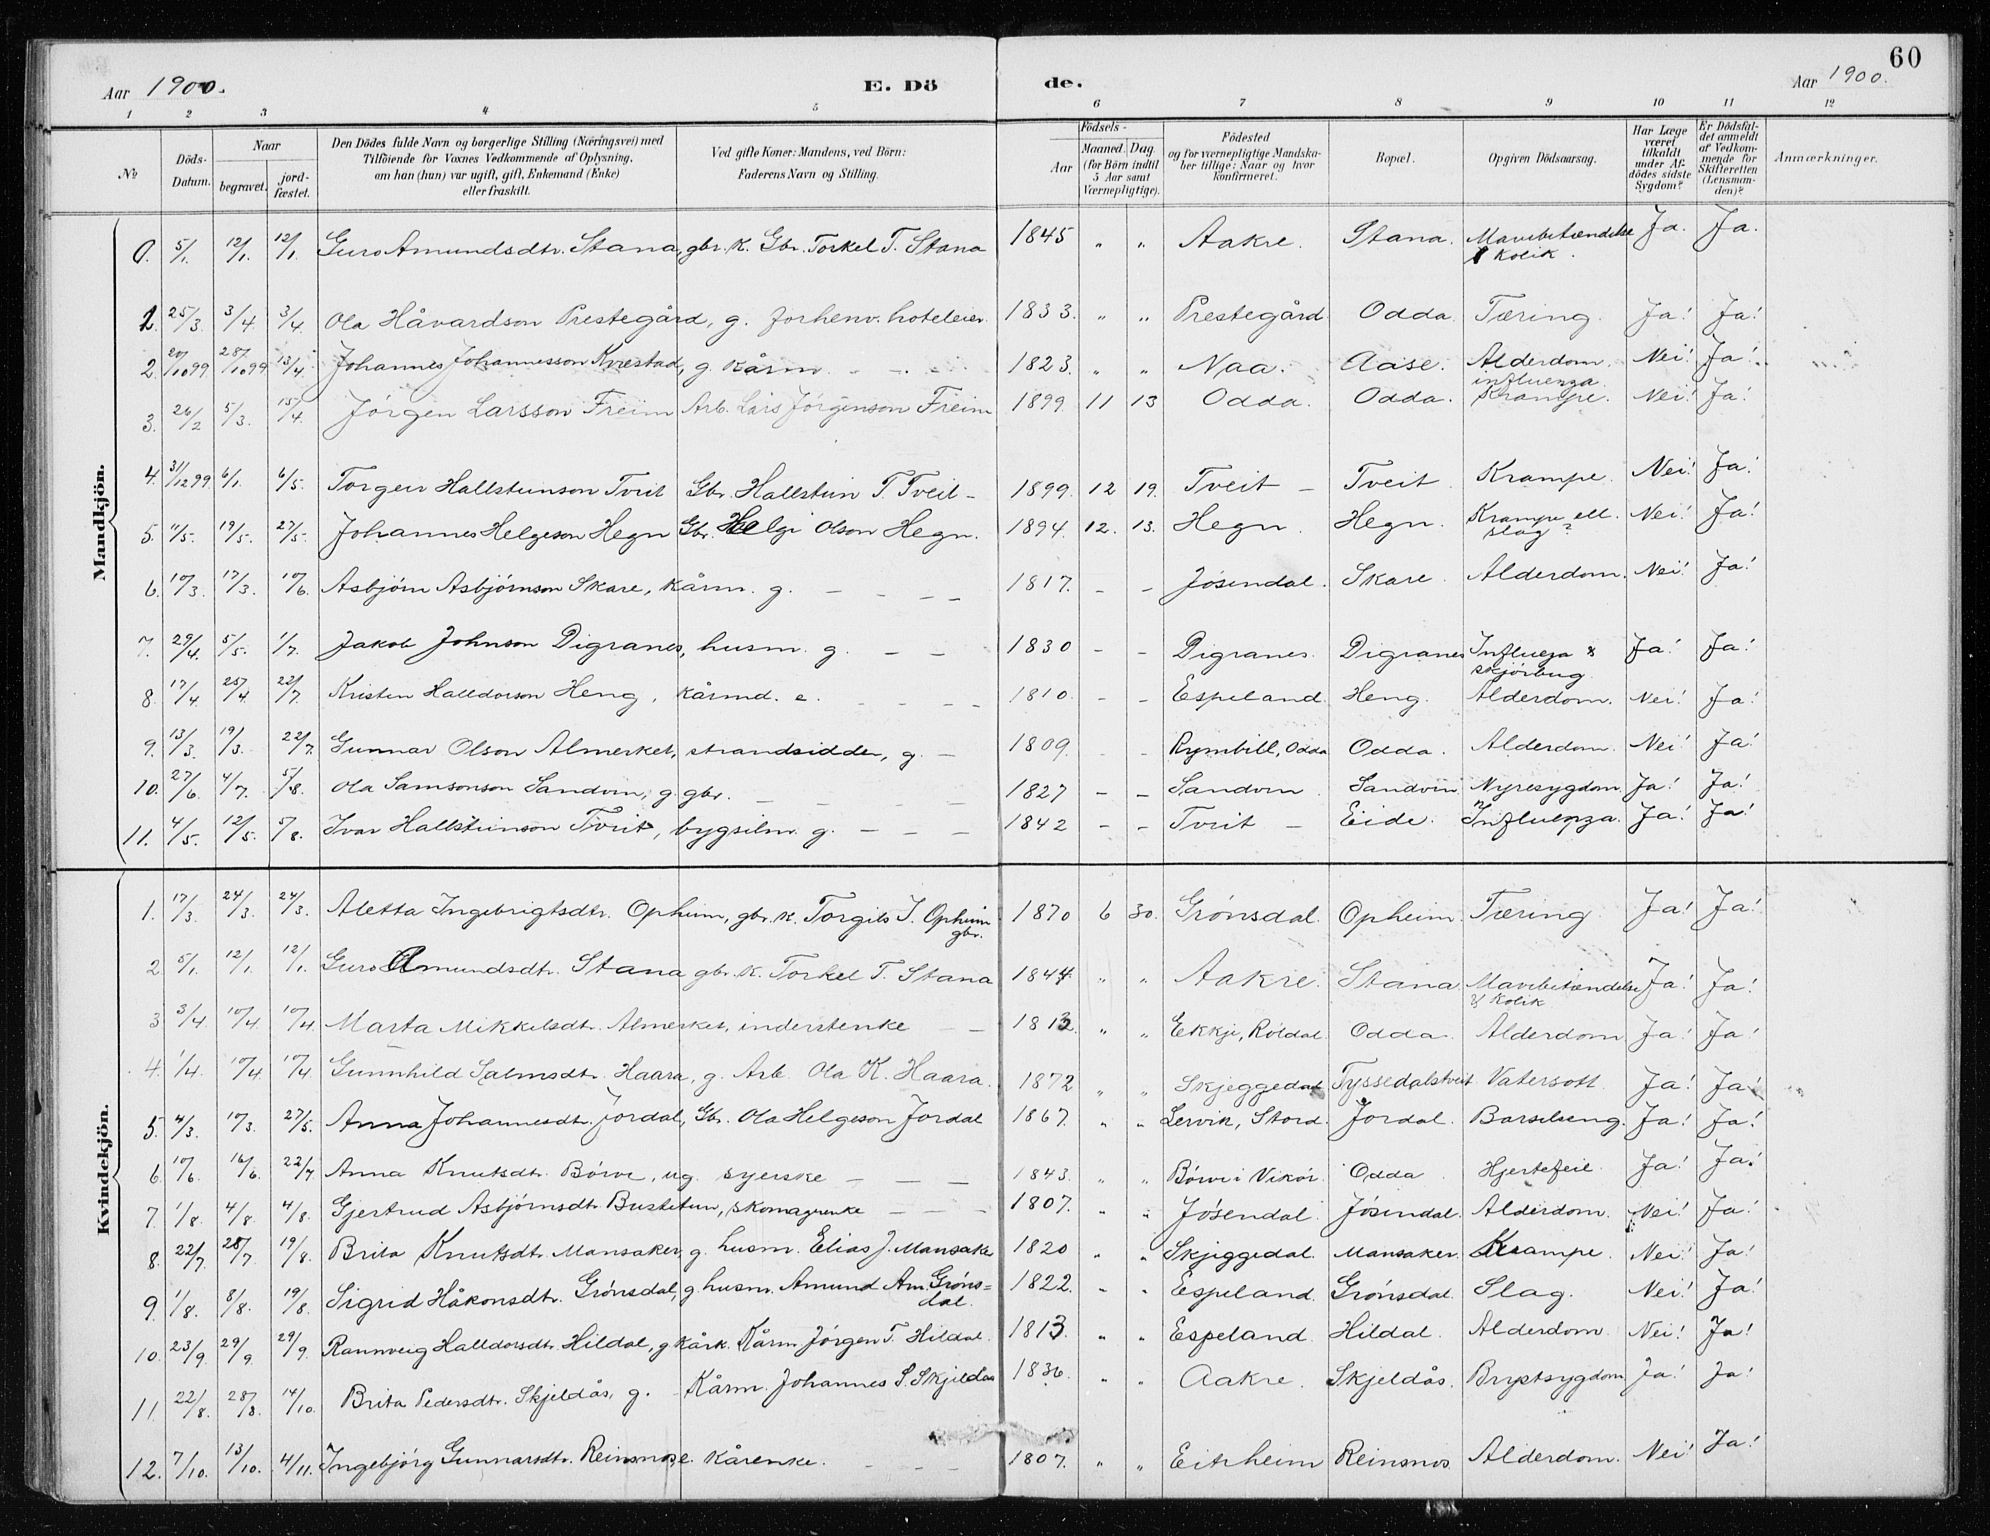 60
Aar 1900. E. Dö de. Aar 1900.
1 2 3 4 5 6 7 8 9 10 11 12
№ Döds-Datum. Naar begravet. jord-fæstet. Den Dödes fulde Navn og borgerlige Stilling (Næringsvei) med Tilföiende for Voxnes Vedkommende af Oplysning, om han (hun) var ugift, gift, Enkemand (Enke) eller fraskilt. Ved gifte Koner: Mandens, ved Börn: Faderens Navn og Stilling. Födsels- Aar Maaned. Dag. (for Börn indtil 5 Aar samt Værnepligtige). Födested og for værnepligtige Mandska-ber tillige: Naar og hvor konfirmeret. Bopæl. Opgiven Dödsaarsag. Har Læge været tilkaldt under Af-dödes sidste Sygdom? Er Dödsfal-det anmeldt af Vedkom-mende for Skifteretten (Lensman-den)? Anmærkninger.
Mandkjön.
0. 5/1. 12/1. 12/1. Guro Amundsdtr. Stana, gbr. k. Gbr. Torkel T. Stana 1845 „ „ Aakre. Stana. Mavebetændelse & Kolik. Ja. Ja.
1. 25/3. 3/4. 3/4. Ola Håvardson Prestegård, g. forhenv. hoteleier. 1833. „ „ Prestegård Odda. Tæring. Ja! Ja!
2. 20/10 99 28/10 99 13/4. Johannes Johannesson Kvestad, g. kårm. — — 1823. „ „ Naa. Aase. Alderdom, influenza. Nei! Ja!
3. 26/2 5/3. 15/4. Jørgen Larsson Freim Arb. Lars Jørgenson Freim 1899. 11 13 Odda. Odda. Krampe. Nei! Ja!
4. 31/12 99. 6/1. 6/5. Torgeir Hallsteinson Tveit Gbr. Hallstein T. Tveit — 1899. 12 19. Tveit — Tveit. Krampe. Nei! Ja!
5. 11/5. 19/5. 27/5. Johannes Helgeson Hegn Gbr. Helgi Olson Hegn. 1894. 12. 13. Hegn. Hegn. Krampe ell. slag? Nei! Ja!
6. 10/3. 17/3. 10/6. Asbjørn Asbjørnson Skare, kårm. g. — — — — 1817. — — Jøsendal. Skare. Alderdom. Nei! Ja!
7. 29/4. 5/5. 1/7. Jakob Johnson Digranes, husm. g. — — 1830 — — Digranes. Digranes Influenza & skjørbug. Ja! Ja!
8. 17/4. 25/4 22/7. Kristen Halldorson Heng, kårmd. e. — — — — 1810. — — Espeland Heng. Alderdom. Nei! Ja!
9. 13/3. 19/3. 22/7. Gunnar Olson Almerket, strandsidder, g. — 1809. — — Rymbill, Odda Odda. Alderdom. Nei! Ja!
10. 27/6 4/7. 5/8. Ola Samsonson Sandvin, g. gbr. — — — 1827 — — Sandvin Sandvin Nyresygdom. Ja! Ja!
11. 4/5. 12/5. 5/8. Ivar Hallsteinson Tveit, g. — — — 1842 — — Tveit — Eide. Influenza. Ja! Ja!
Kvindekjön.
1. 17/3. 24/3. 24/3. Aletta Ingebrigtsdtr. Opheim, gbr. k. Torgils I. Opheim gbr. 1870 6 30. Grønsdal. Opheim. Tæring. Ja! Ja!
2. 5/1. 12/1. 12/1. Guro Amundsdtr. Stana gbr. k. Torkel T. Stana 1844. „ „ Aakre. Stana. Mavebetændelse & Kolik Ja! Ja!
3 3/4. 10/4 10/4 Marta Mikkelsdtr. Almerket, inderstenke — — 1812. „ „ Ekkje, Röldal. Odda. Alderdom Ja! Ja!
4. 1/4. 10/4 10/4 Gunnhild Salmsdtr. Haara, g. Arb. Ola K. Haara. 1872 „ „ Skjeggedal Tyssedalstveit Vatersott. Ja! Ja!
5. 4/3. 10/3. 27/5. Anna Johannesdtr. Jordal, Gbr. Ola Helgeson Jordal 1867. „ „ Lervik, Stord. Jordal. Barselseng. Ja! Ja!
6. 10/6. 16/6. 22/7 Anna Knutsdtr. Børve, ug. syerske — — — 1843. „ „ Børve i Vikør. Odda Hjertefeil. Ja! Ja!
7. 1/8. 4/8. 4/8. Gjertrud Asbjørnsdtr. Bustetun, skomagerenke — — — 1807. „ „ Jøsendal. Jøsendal. Alderdom. Nei! Ja!
8. 22/7. 28/7 19/8. Brita Knutsdtr. Mansaker, g. husm. Elias J. Mansaker 1820 „ „ Skjeggedal. Mansaker. Krampe. Nei! Ja!
9 1/8. 8/8. 19/8. Sigrid Håkonsdtr. Grønsdal, g. husm. Amund Am. Grøns=dal. 1822. „ „ Espeland. Grønsdal. Slag. Nei! Ja!
10. 23/9. 29/9. 29/9. Rannveig Halldorsdtr. Hildal, g. kårk. Kårm. Jørgen T. Hildal. 1813. „ „ Espeland. Hildal. Alderdom. Nei! Ja!
11. 22/8. 28/8. 14/10. Brita Pedersdtr. Skjeldås, g. Kårm. Johannes S. Skjeldås 1836. „ „ Aakre. Skjeldås. Brystsygdom. Ja! Ja!
12. 7/10. 13/10. 4/11. Ingebjørg Gunnarsdtr. Reinsnos, e. kårenke. — — — 1807. „ „ Eitrheim Reinsnos Alderdom. Nei! Ja!